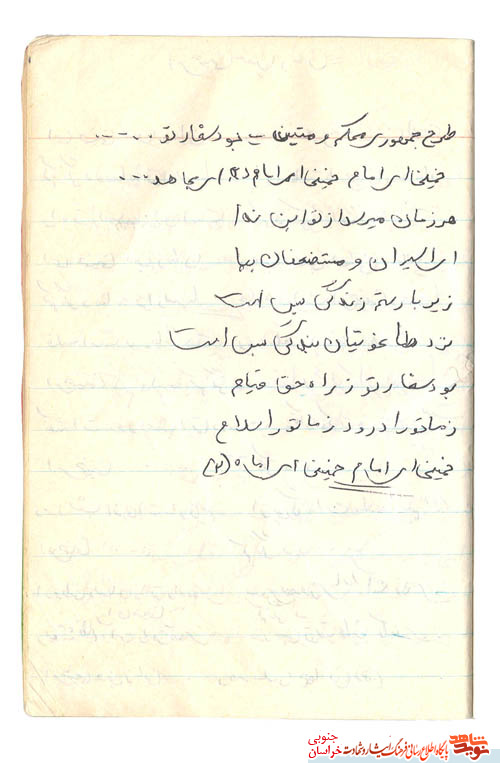 طرح جمهوری محکم و متین بود سفار تو ......
خمینی ای امام خمینی ای امام (۲) ای مجاهد ....
هر زمان میرسد از تو این ندا
ای اسیران و مستضعفان بپا
زیر بار ستم زندگی بس است
نزد طاغوتیان بندگی بس است
بود سفار تو ز راه حق قیام
ز ما تو را درود ز ما تو را سلام
خمینی ای امام خمینی ای امام (۲)
نوید شاهد
پایگاه اطلاع رسانی فرهنگ ایثار و شهادت
خراسان جنوبی